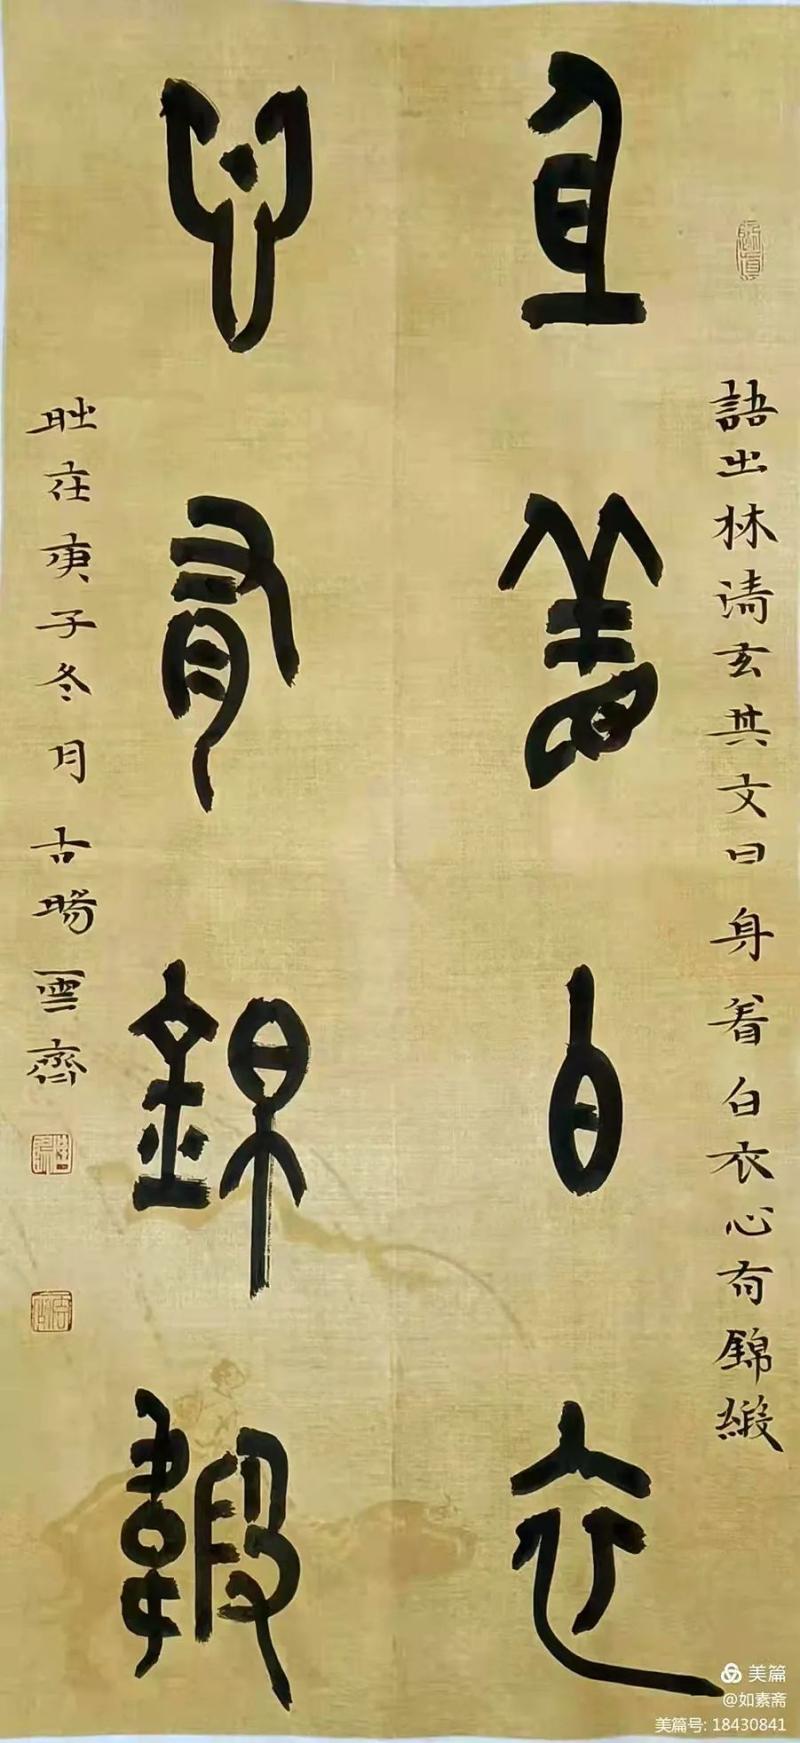 語出林清玄其文曰身着白衣心有錦緞
身着白衣
心有錦緞
時在庚子冬月古暘雲齋
美篇
@如素斋
美篇号: 18430841